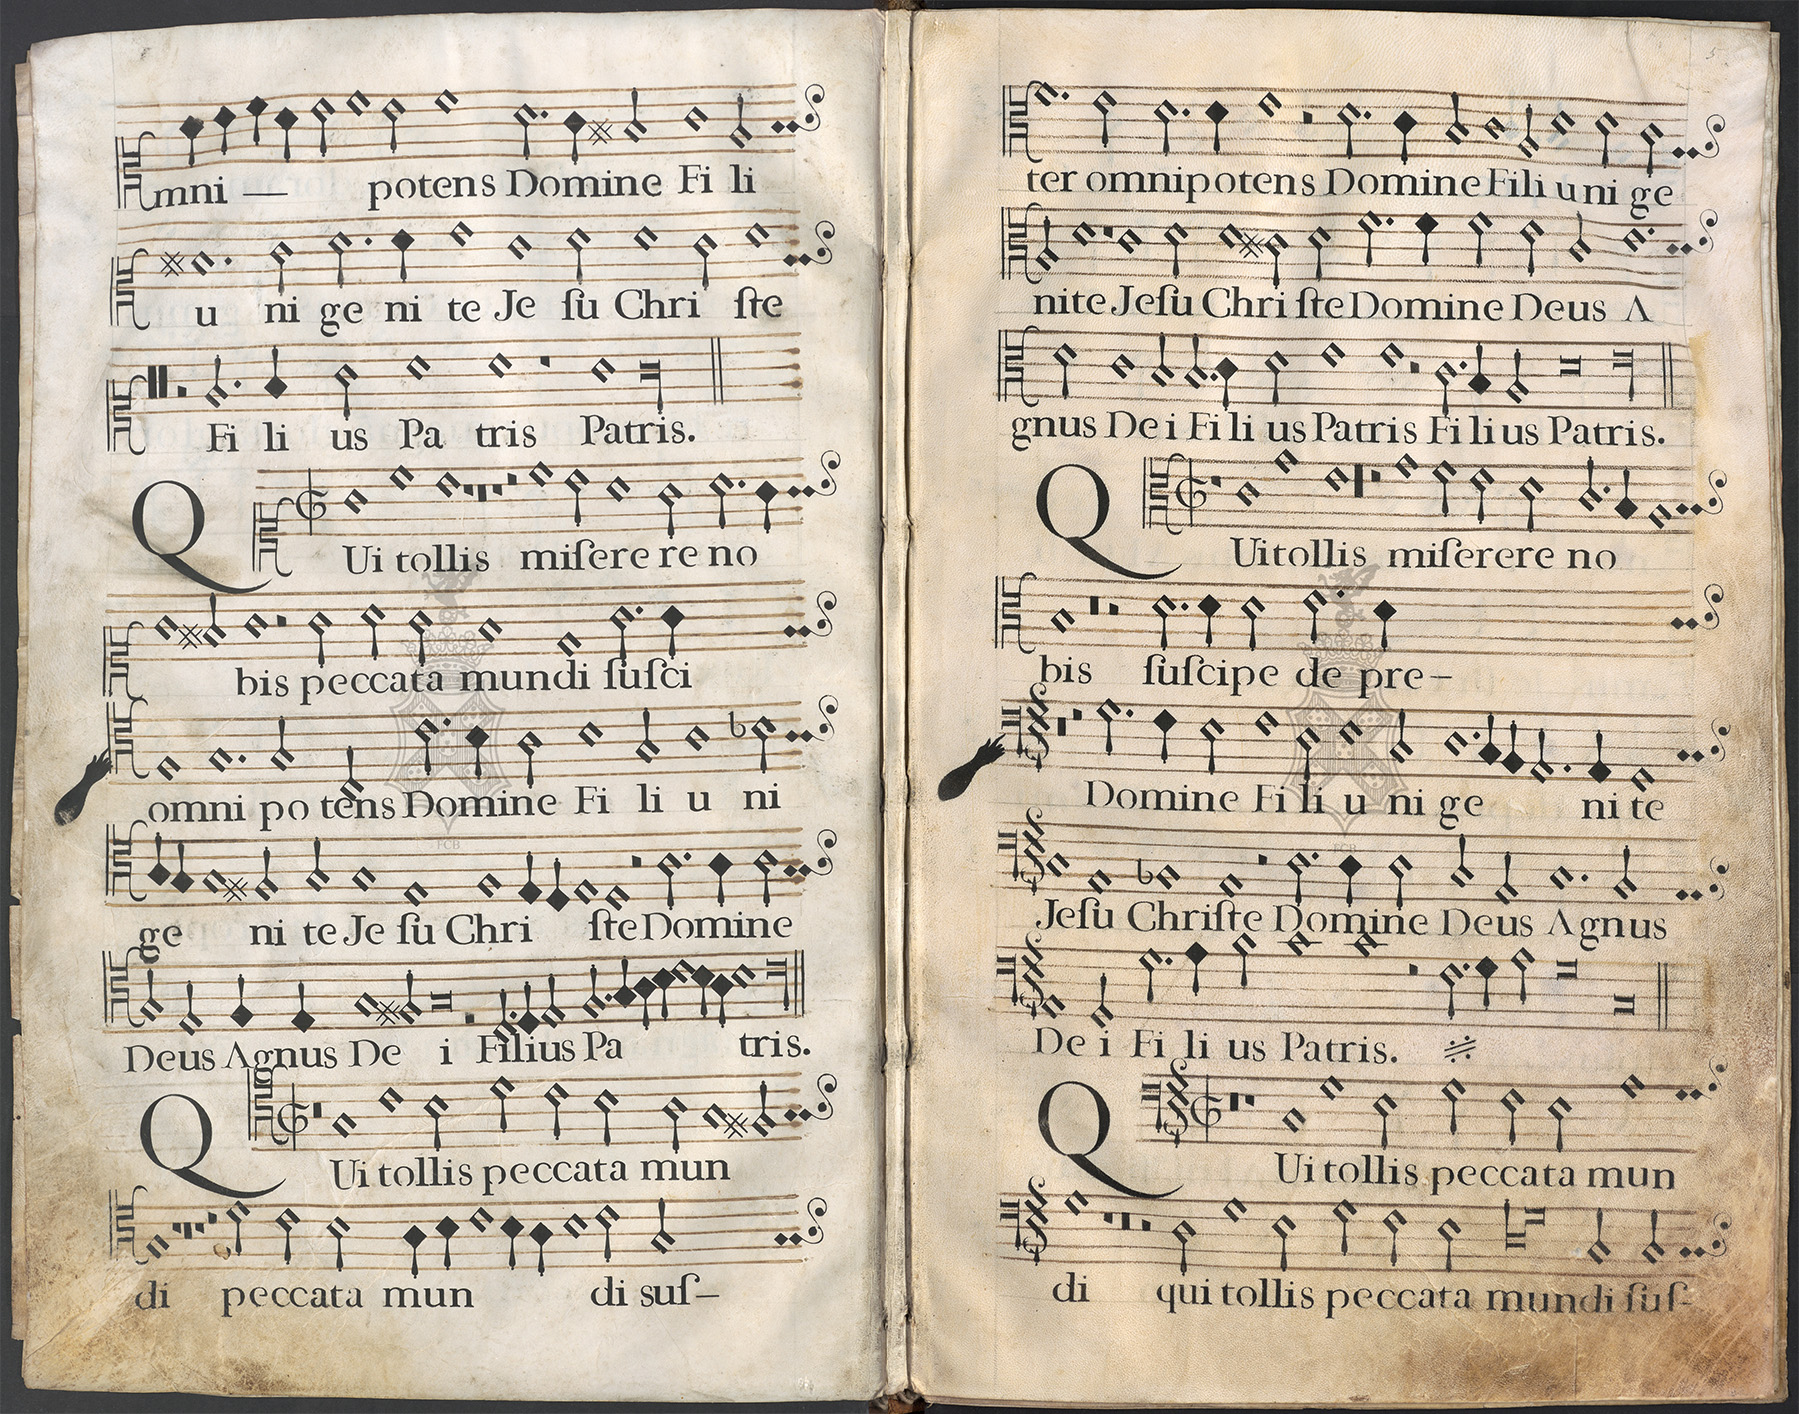 mni — potens Domine Fi li
u ni ge ni te Je ſu Chri ſte
Fi li us Pa tris Patris.
QUi tollis miſere re no
bis peccata mundi ſuſci
omni po tens Domine Fi li u ni
ge ni te Je ſu Chri ſte Domine
Deus Agnus De i Filius Pa tris.
QUi tollis peccata mun
di peccata mun di suſ–
5
ter omnipotens Domine Fili uni ge
nite Jeſu Chri ſte Domine Deus A
gnus De i Fi li us Patris Fi li us Patris.
QUi tollis miſerere no
bis ſuſcipe de pre–
Domine Fi li u ni ge ni te
Jeſu Chriſte Domine Deus Agnus
De i Fi li us Patris.
QUi tollis peccata mun
di qui tollis peccata mundi ſuſ-
FCB
FCB